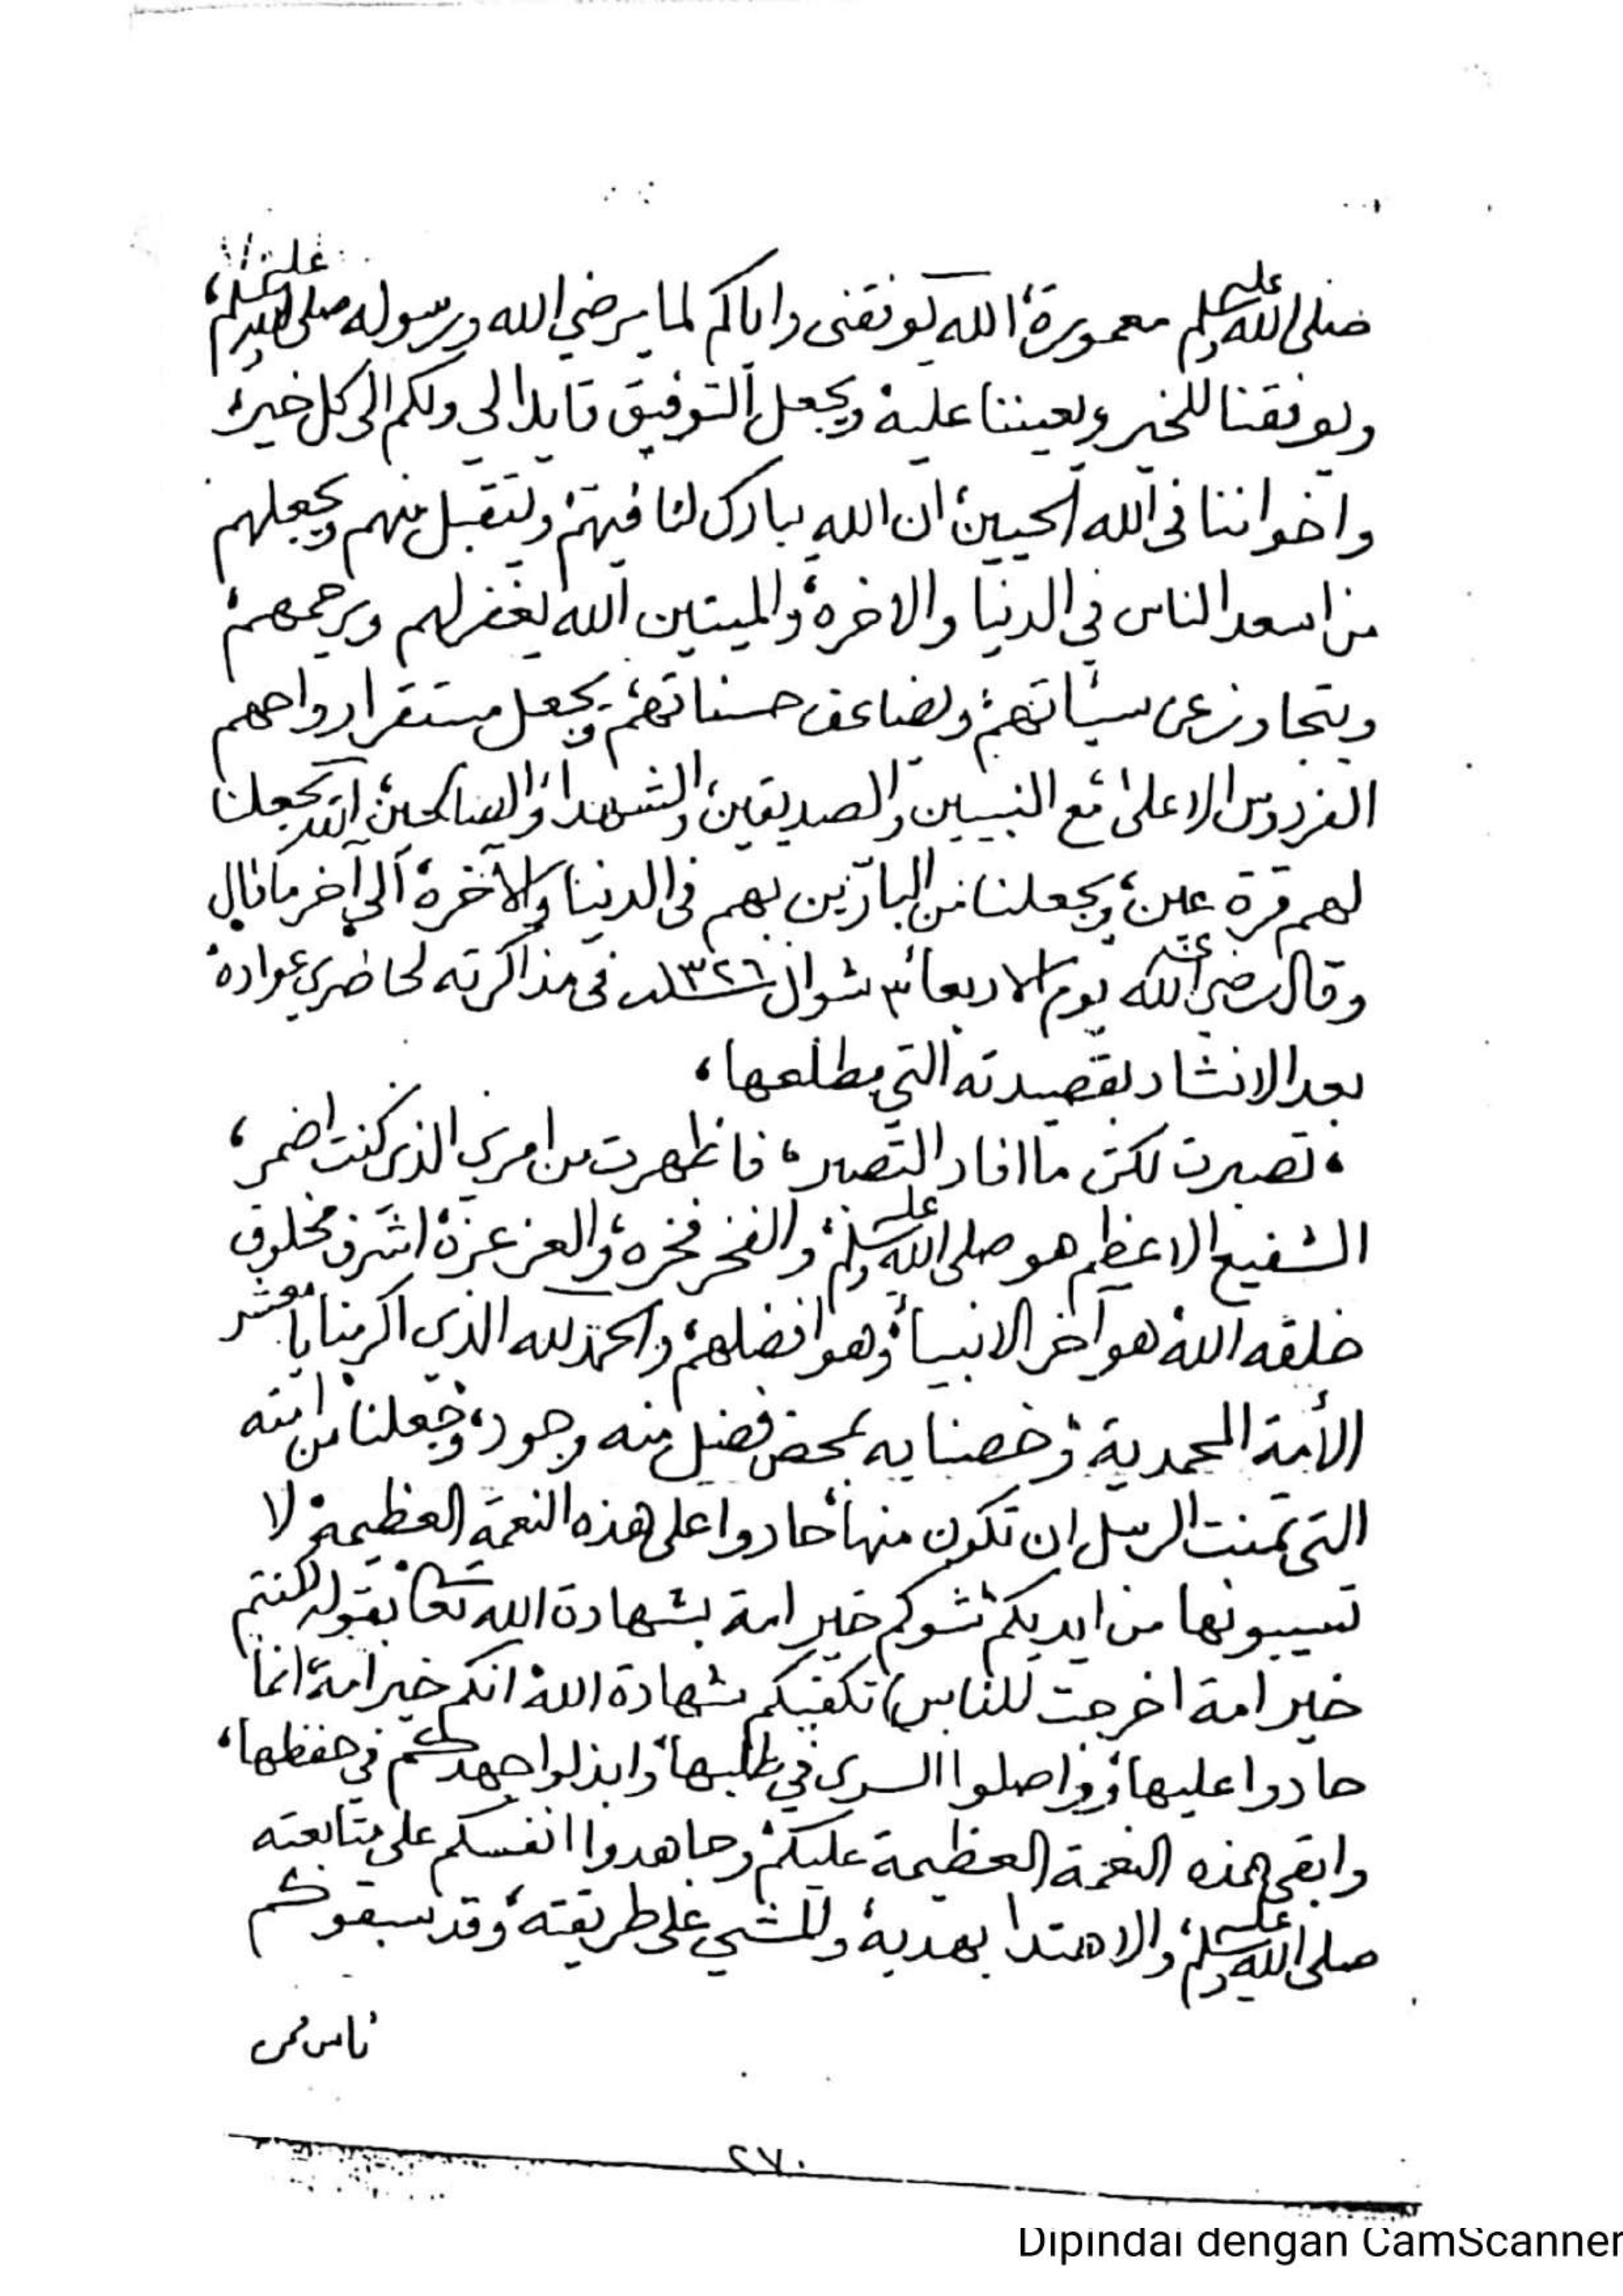 صلى الله عليه وسلم معمورة، الله يوفقنى واياكم لما يرضي الله ورسوله صلى الله عليه وسلم،
ويوفقنا للخير ويعيننا عليه، ويجعل التوفيق قايدا لى ولكم الى كل خير،
واخواننا فى الله الحيين، ان الله يبارك لنا فيهم، ويتقبل منهم ويجعلهم
من اسعد الناس في الدنيا والاخرة، والميتين الله يغفر لهم ويرحمهم،
ويتجاوز عن سيئاتهم، ويضاعف حسناتهم، ويجعل مستقر ارواحهم
الفردوس الاعلى، مع النبيين والصديقين، والشهدا، والصالحين، الله يجعلنا
لهم قرة عين، ويجعلنا من البارّين بهم فى الدنيا والآخرة، الى آخر ما قال
وقال رضي الله عنه يوم الاربعاء ٣ شوال ١٣٢٦ فى مذاكرته لحاضري عواده،
بعد الانشاد بقصيدته التي مطلعها،
، تصبرت لكن ما افاد التصبر، فاظهرت من امري الذى كنت اضمر،
الشفيع الاعظم هو صلى الله عليه وسلم، والفخر فخره، والعز عزه، اشرف مخلوق
خلقه الله، هو آخر الانبياء، وهو افضلهم، والحمد لله الذي اكرمنا يا معشر
الأمة المحمدية، وخصنا به بمحض فضل منه وجود، وجعلنا من امته
التى تمنت الرسل ان تكون منها، حادوا على هذه النعمة العظيمة، لا
تسيبونها من ايديكم، شوكم خير امة بشهادة الله تعالى بقوله (كنتم
خير امة اخرجت للناس) تكفيكم شهادة الله، انكم خير امة، انما
حادوا عليها، وواصلوا السرى في طلبها، وابذلوا جهدكم في حفظها،
وابقى هذه النعمة العظيمة عليكم، وجاهدوا انفسكم على متابعته
صلى الله عليه وسلم، والاهتدا بهديه، وللمشي على طريقته، وقد سبقوكم
ناس من
٢٧٠
Dipindai dengan CamScanner